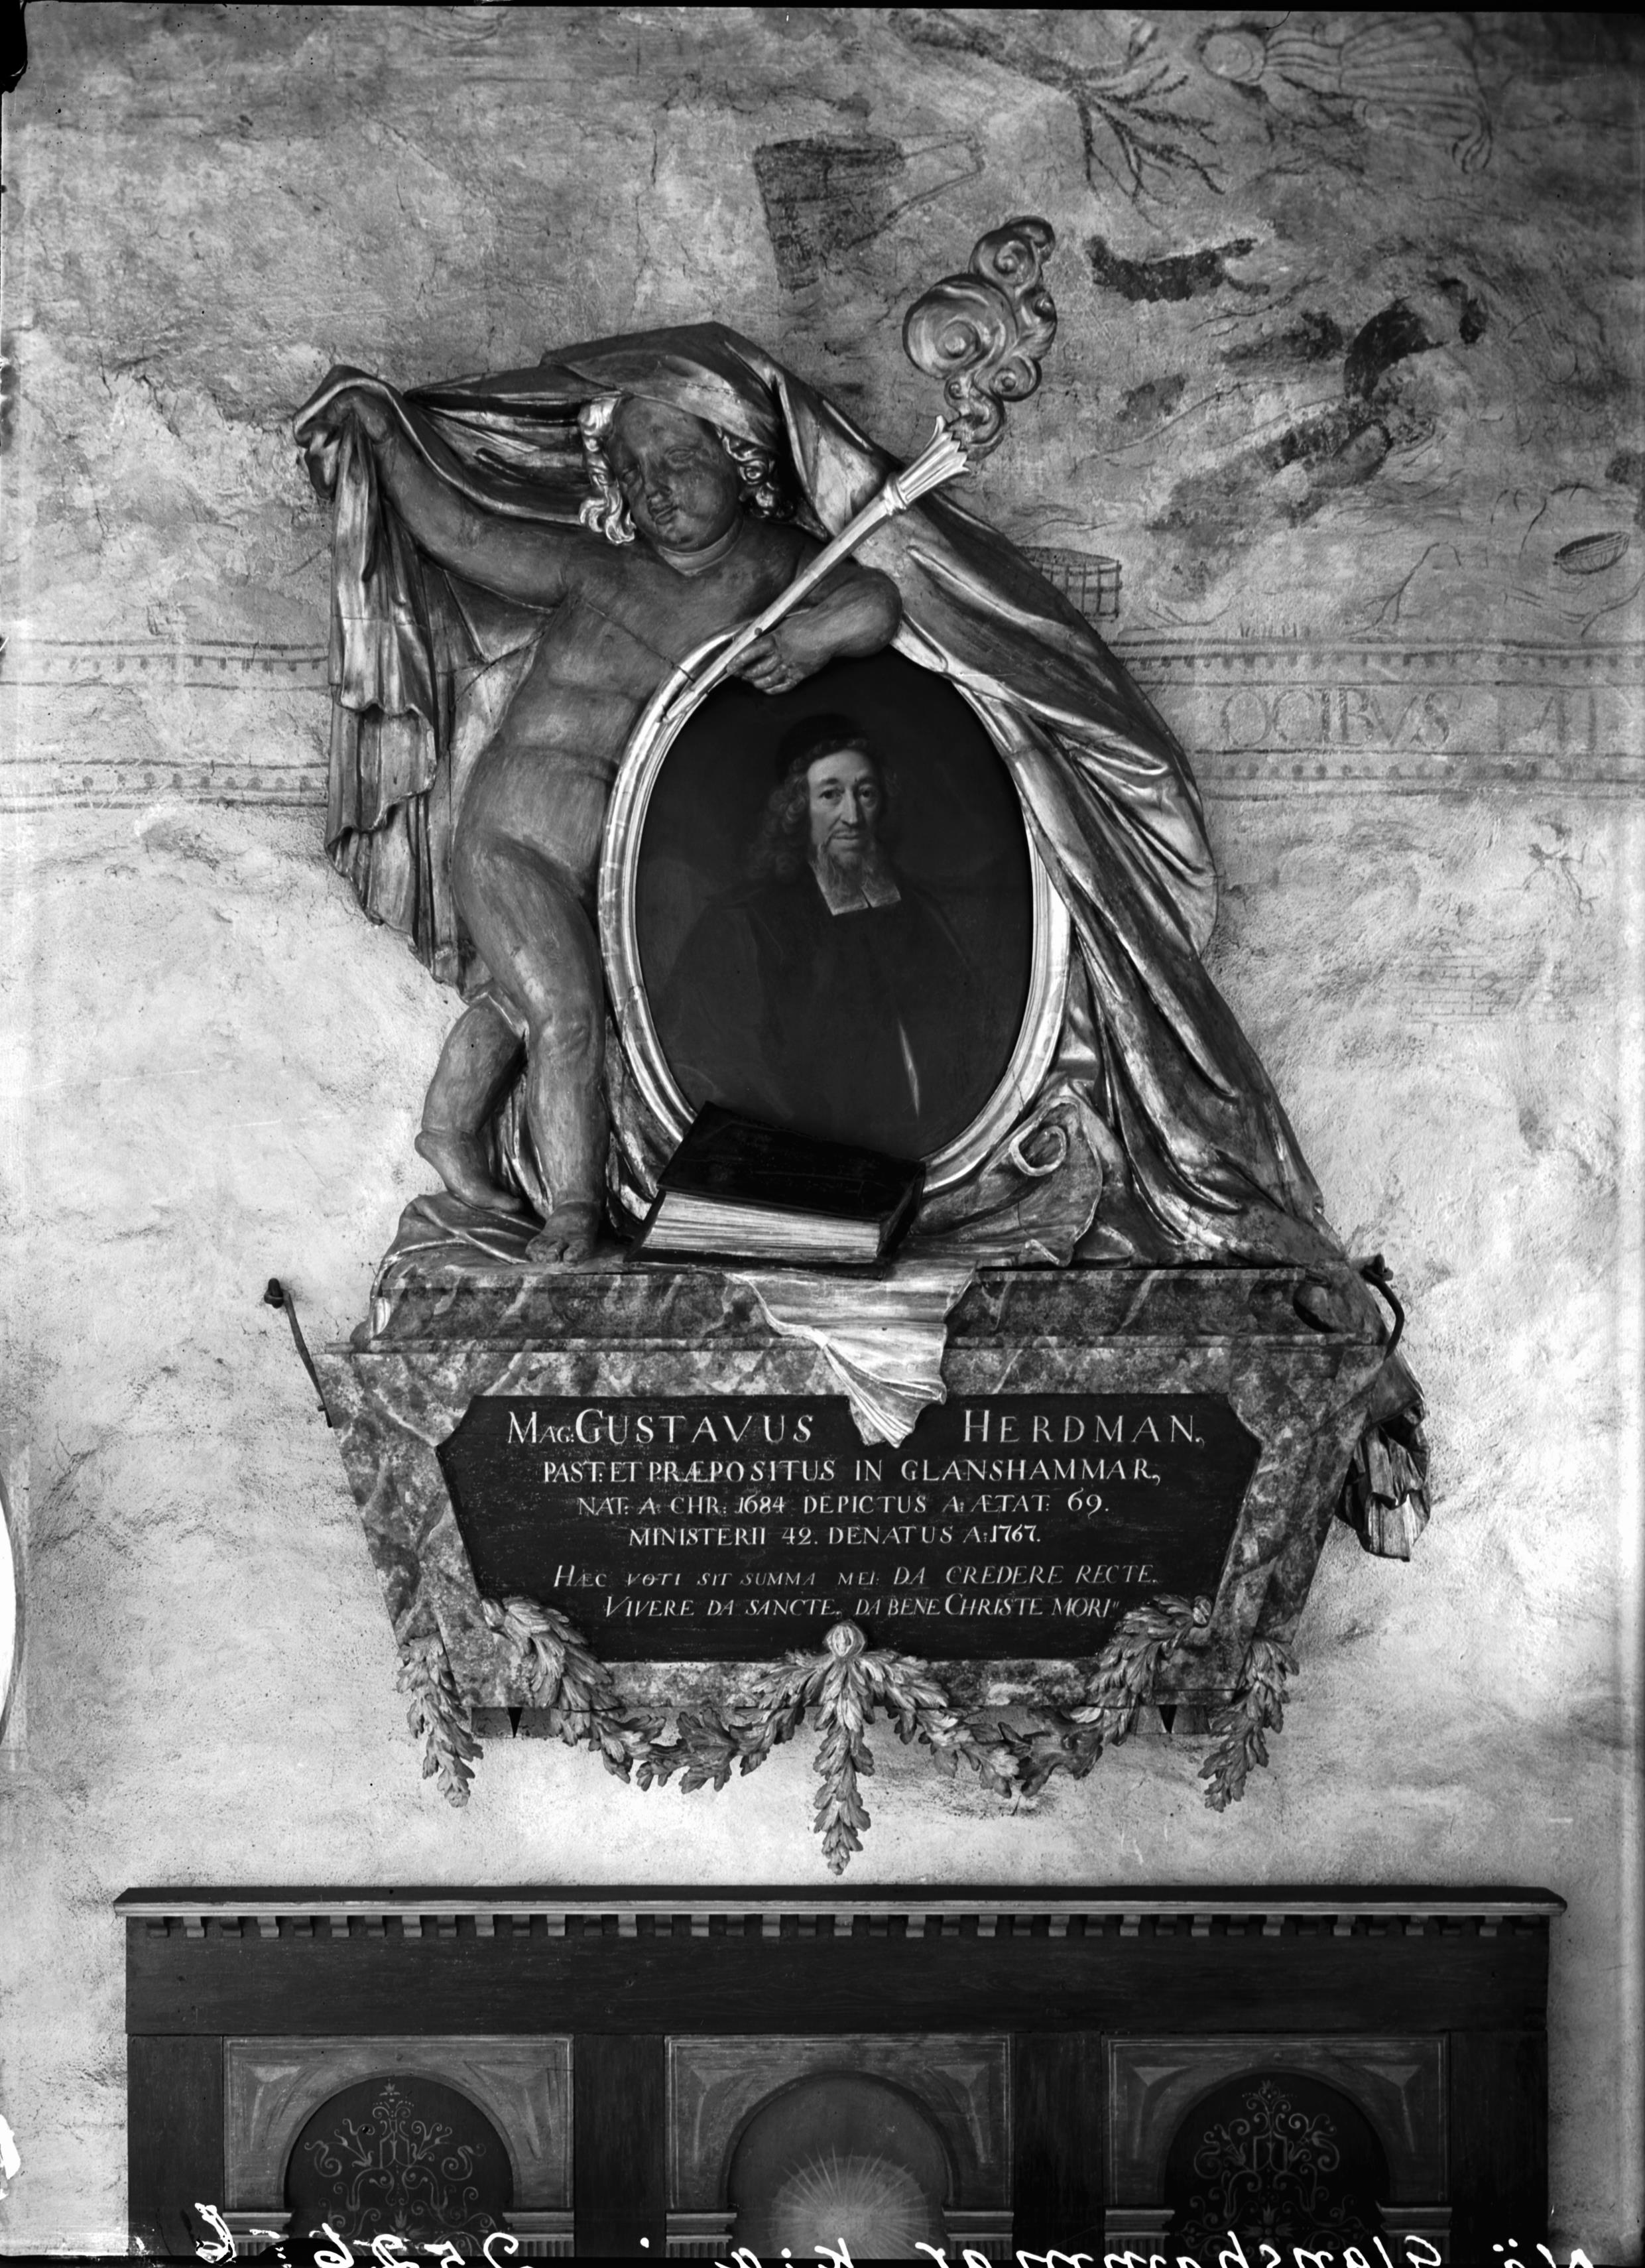 OCIBVS
MAG: GUSTAVUS HERDMAN,
PAST: ET PRÆPOSITUS IN GLANSHAMMAR,
NAT: A: CHR: 1684 DEPICTUS A: ÆTAT: 69.
MINISTERII 42. DENATUS A: 1767.
HÆC VOTI SIT SUMMA MEI: DA CREDERE RECTE.
VIVERE DA SANCTE. DA BENE CHRISTE MORI"